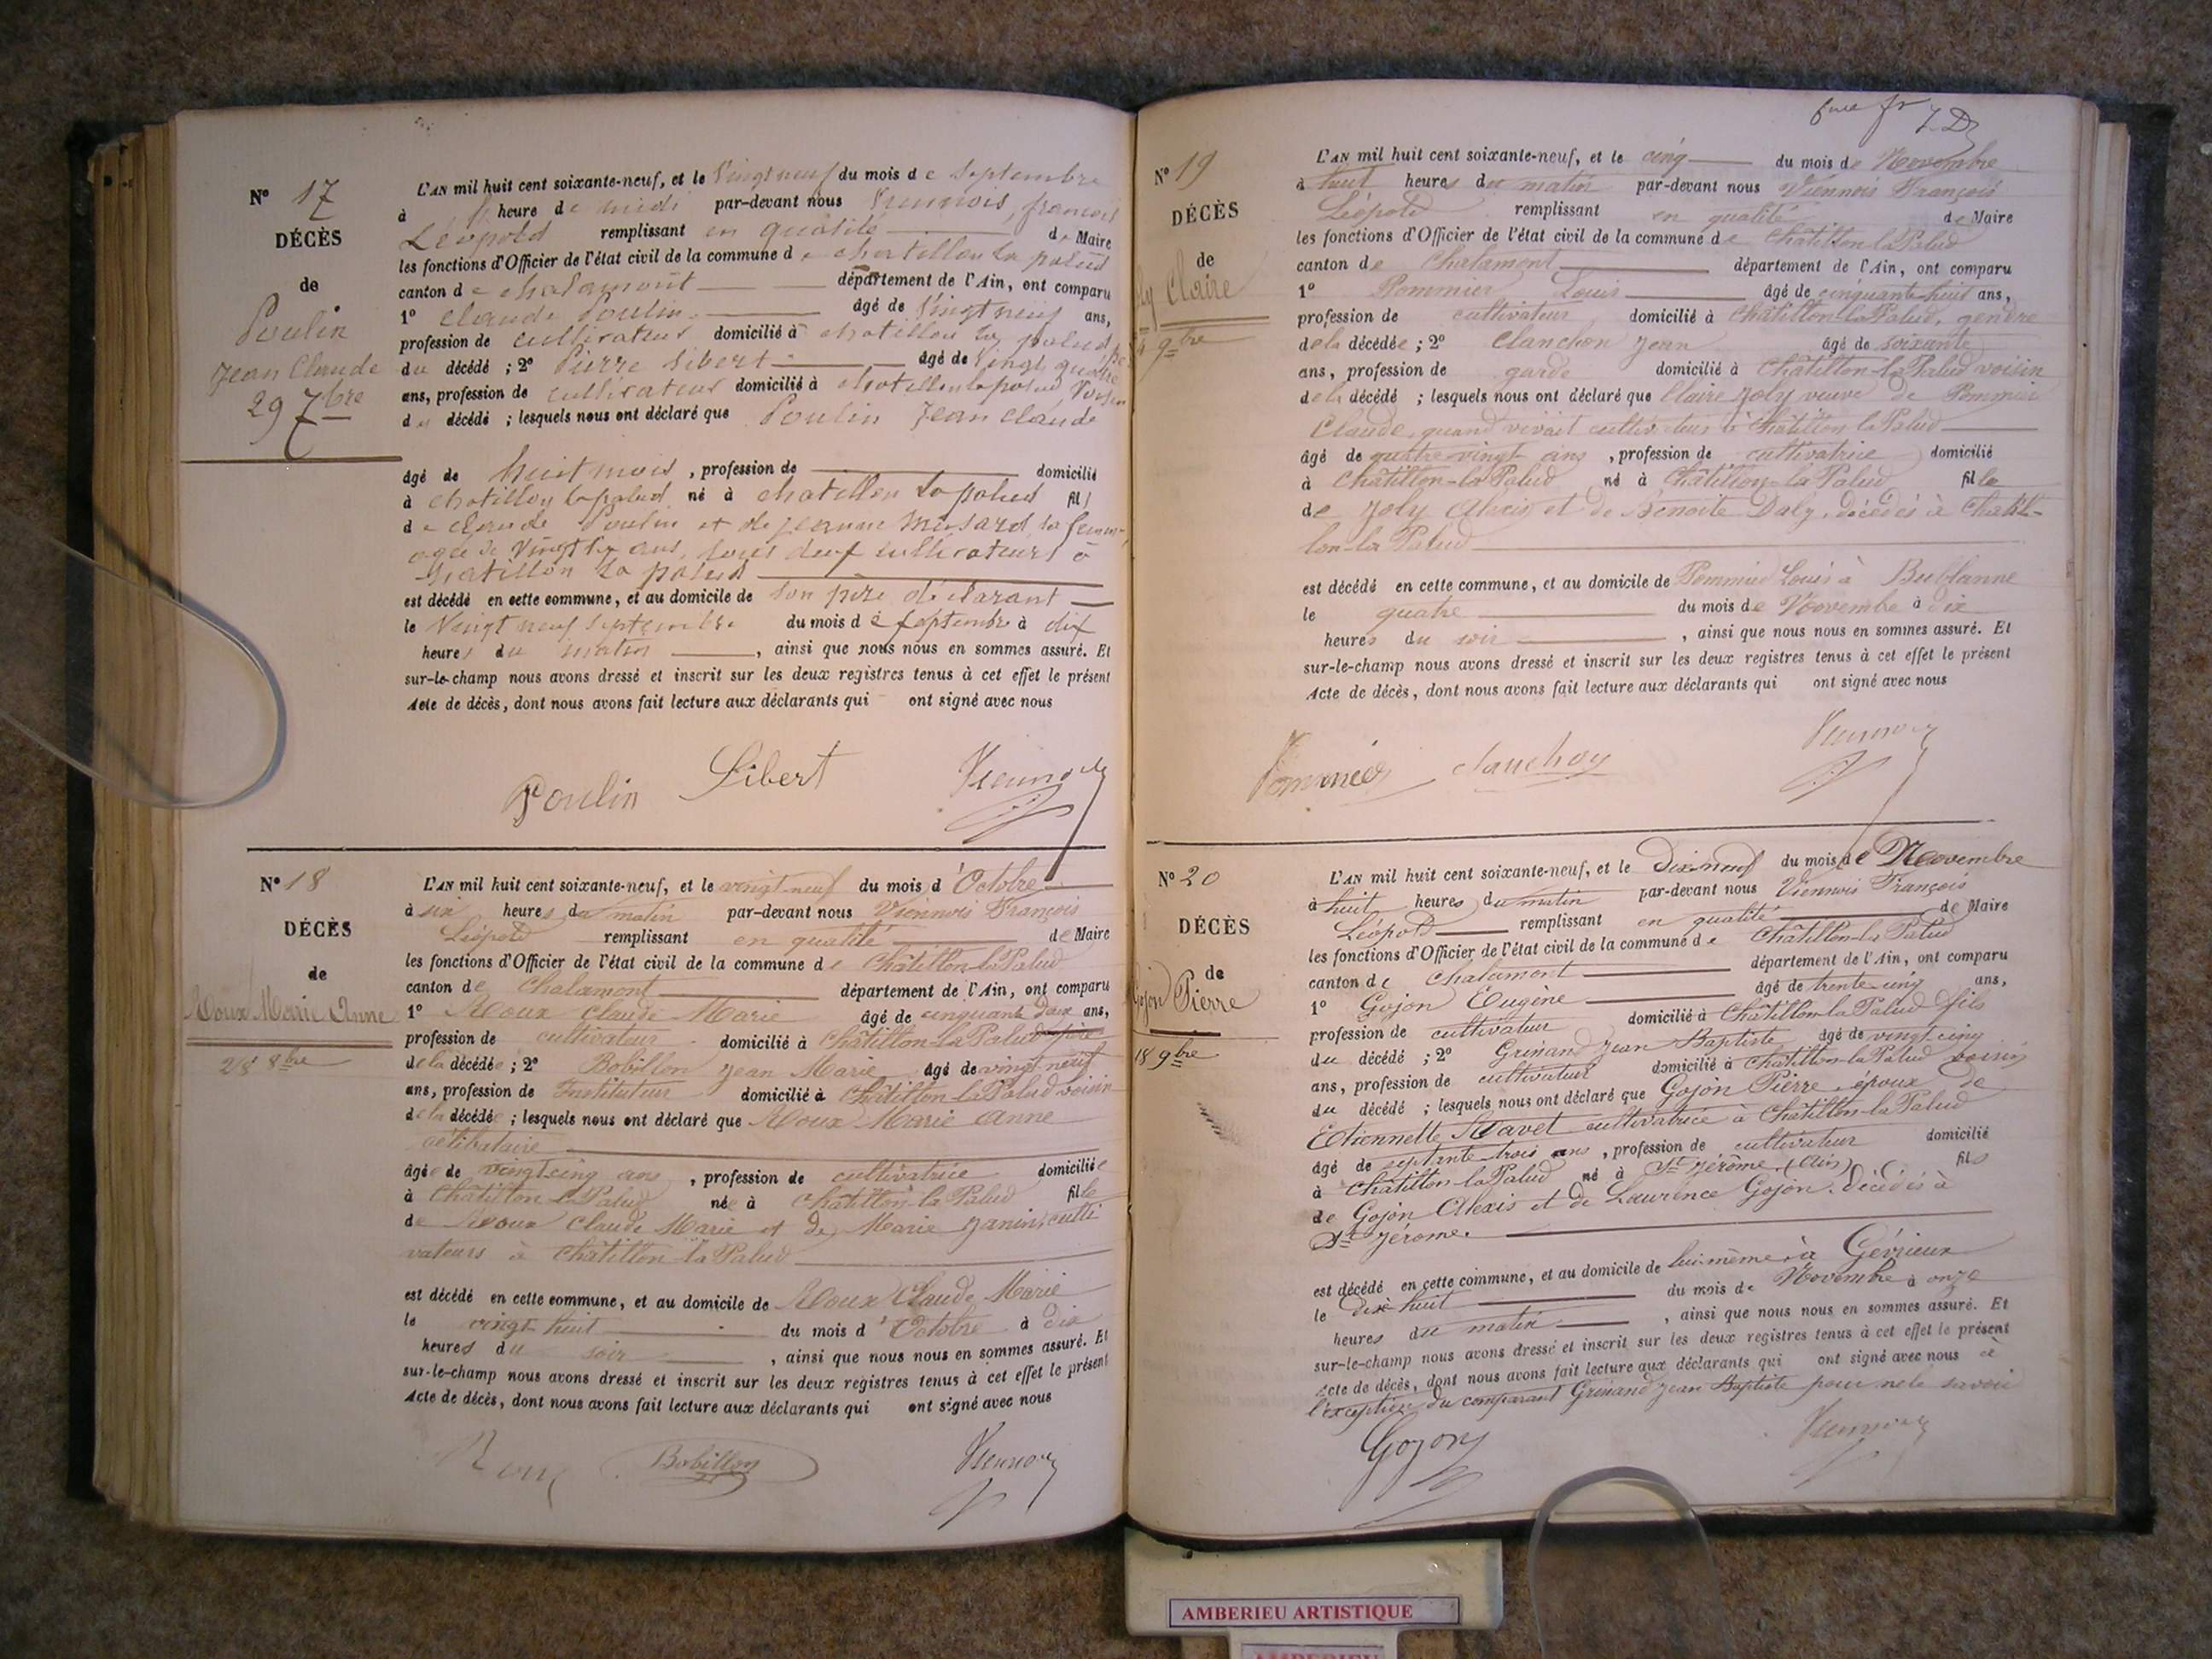 N° 17
DÉCÈS
de
Poulin
Jean Claude
29 7bre
L'AN mil huit cent soixante-neuf, et le Vingt neuf du mois de septembre
à heure de midi par-devant nous Viennois, francois
Léopold remplissant en qualité de Maire
les fonctions d'Officier de l'état civil de la commune de chatillon la palud
canton de chalamont département de l'Ain, ont comparu
1° Claude Poulin âgé de Vingt neuf ans,
profession de cultivateur domicilié à chatillon la palud
du décédé ; 2° Pierre Sibert âgé de Vingt quatre
ans, profession de cultivateur domicilié à chatillon la palud Voisin
du décédé ; lesquels nous ont déclaré que Poulin Jean claude
âgé de huit mois , profession de domicilié
à chatillon la palud né à chatillon la palud fils
de claude Poulin et de jeanne Musard sa femme
agée de Vingt six ans, tous deux cultivateurs à
chatillon la palud
est décédé en cette commune, et au domicile de son père déclarant
le Vingt neuf septembre du mois de septembre à dix
heures du matin , ainsi que nous nous en sommes assuré. Et
sur-le-champ nous avons dressé et inscrit sur les deux registres tenus à cet effet le présent
Acte de décès, dont nous avons fait lecture aux déclarants qui ont signé avec nous
Poulin Sibert Viennois
N° 18
DÉCÈS
de
Roux Marie Anne
28 8bre
L'AN mil huit cent soixante-neuf, et le vingt-neuf du mois d'Octobre
à six heures du matin par-devant nous Viennois François
Léopold remplissant en qualité de Maire
les fonctions d'Officier de l'état civil de la commune de Châtillon-la-Palud
canton de Chalamont département de l'Ain, ont comparu
1° Roux Claude Marie âgé de cinquante deux ans,
profession de cultivateur domicilié à Châtillon-la-Palud père
de la décédée ; 2° Bobillon Jean Marie âgé de vingt neuf
ans, profession de Instituteur domicilié à Châtillon-la-Palud voisin
de la décédée ; lesquels nous ont déclaré que Roux Marie Anne
célibataire
âgée de vingt cinq ans , profession de cultivatrice domiciliée
à Châtillon-la-Palud née à Châtillon-la-Palud fille
de Roux Claude Marie et de Marie Janin, culti
vateurs à Châtillon-la-Palud
est décédé en cette commune, et au domicile de Roux Claude Marie
le vingt huit du mois d'Octobre à dix
heures du soir , ainsi que nous nous en sommes assuré. Et
sur-le-champ nous avons dressé et inscrit sur les deux registres tenus à cet effet le présent
Acte de décès, dont nous avons fait lecture aux déclarants qui ont signé avec nous
Roux Bobillon Viennois
N° 19
DÉCÈS
de
Claire
9bre
L'AN mil huit cent soixante-neuf, et le cinq du mois de Novembre
à huit heures du matin par-devant nous Viennois François
Léopold remplissant en qualité de Maire
les fonctions d'Officier de l'état civil de la commune de Châtillon-la-Palud
canton de Chalamont département de l'Ain, ont comparu
1° Pommier Louis âgé de cinquante huit ans,
profession de cultivateur domicilié à Châtillon-la-Palud, gendre
de la décédée ; 2° Clanchon Jean âgé de soixante
ans, profession de garde domicilié à Châtillon-la-Palud voisin
de la décédé ; lesquels nous ont déclaré que Claire Joly veuve de Pommier
Claude, quand vivait cultivateur à Châtillon-la-Palud
âgé de quatre vingt ans , profession de cultivatrice domicilié
à Châtillon-la-Palud né à Châtillon-la-Palud fille
de Joly et de Benoite Daly, décédés à Chatil-
lon-la-Palud
est décédé en cette commune, et au domicile de Pommier Louis à Bublanne
le quatre du mois de Novembre à dix
heures du soir , ainsi que nous nous en sommes assuré. Et
sur-le-champ nous avons dressé et inscrit sur les deux registres tenus à cet effet le présent
Acte de décès, dont nous avons fait lecture aux déclarants qui ont signé avec nous
Pommier Viennois
N° 20
DÉCÈS
de
Gojon Pierre
18 9bre
L'AN mil huit cent soixante-neuf, et le Dix-neuf du mois de Novembre
à huit heures du matin par-devant nous Viennois François
Léopold remplissant en qualité de Maire
les fonctions d'Officier de l'état civil de la commune de Châtillon-la-Palud
canton de Chalamont département de l'Ain, ont comparu
1° Gojon Eugène âgé de trente-cinq ans,
profession de cultivateur domicilié à Châtillon-la-Palud fils
du décédé ; 2° Grinand Jean Baptiste âgé de vingt cinq
ans, profession de cultivateur domicilié à Châtillon-la-Palud voisin
du décédé ; lesquels nous ont déclaré que Gojon Pierre, époux de
Etiennette Ravet cultivatrice à Châtillon-la-Palud
âgé de septante-trois ans , profession de cultivateur domicilié
à Châtillon-la-Palud né à St Jérôme (Ain) fils
de Gojon Alexis et de Laurence Gojon, décédés à
St Jérome.
est décédé en cette commune, et au domicile de lui-même à Gévrieux
le dix-huit du mois de Novembre à onze
heures du matin , ainsi que nous nous en sommes assuré. Et
sur-le-champ nous avons dressé et inscrit sur les deux registres tenus à cet effet le présent
Acte de décès, dont nous avons fait lecture aux déclarants qui ont signé avec nous à
l'exception du comparant Grinand Jean Baptiste pour ne le savoir
Gojon Viennois
AMBERIEU ARTISTIQUE
AMBERIEU